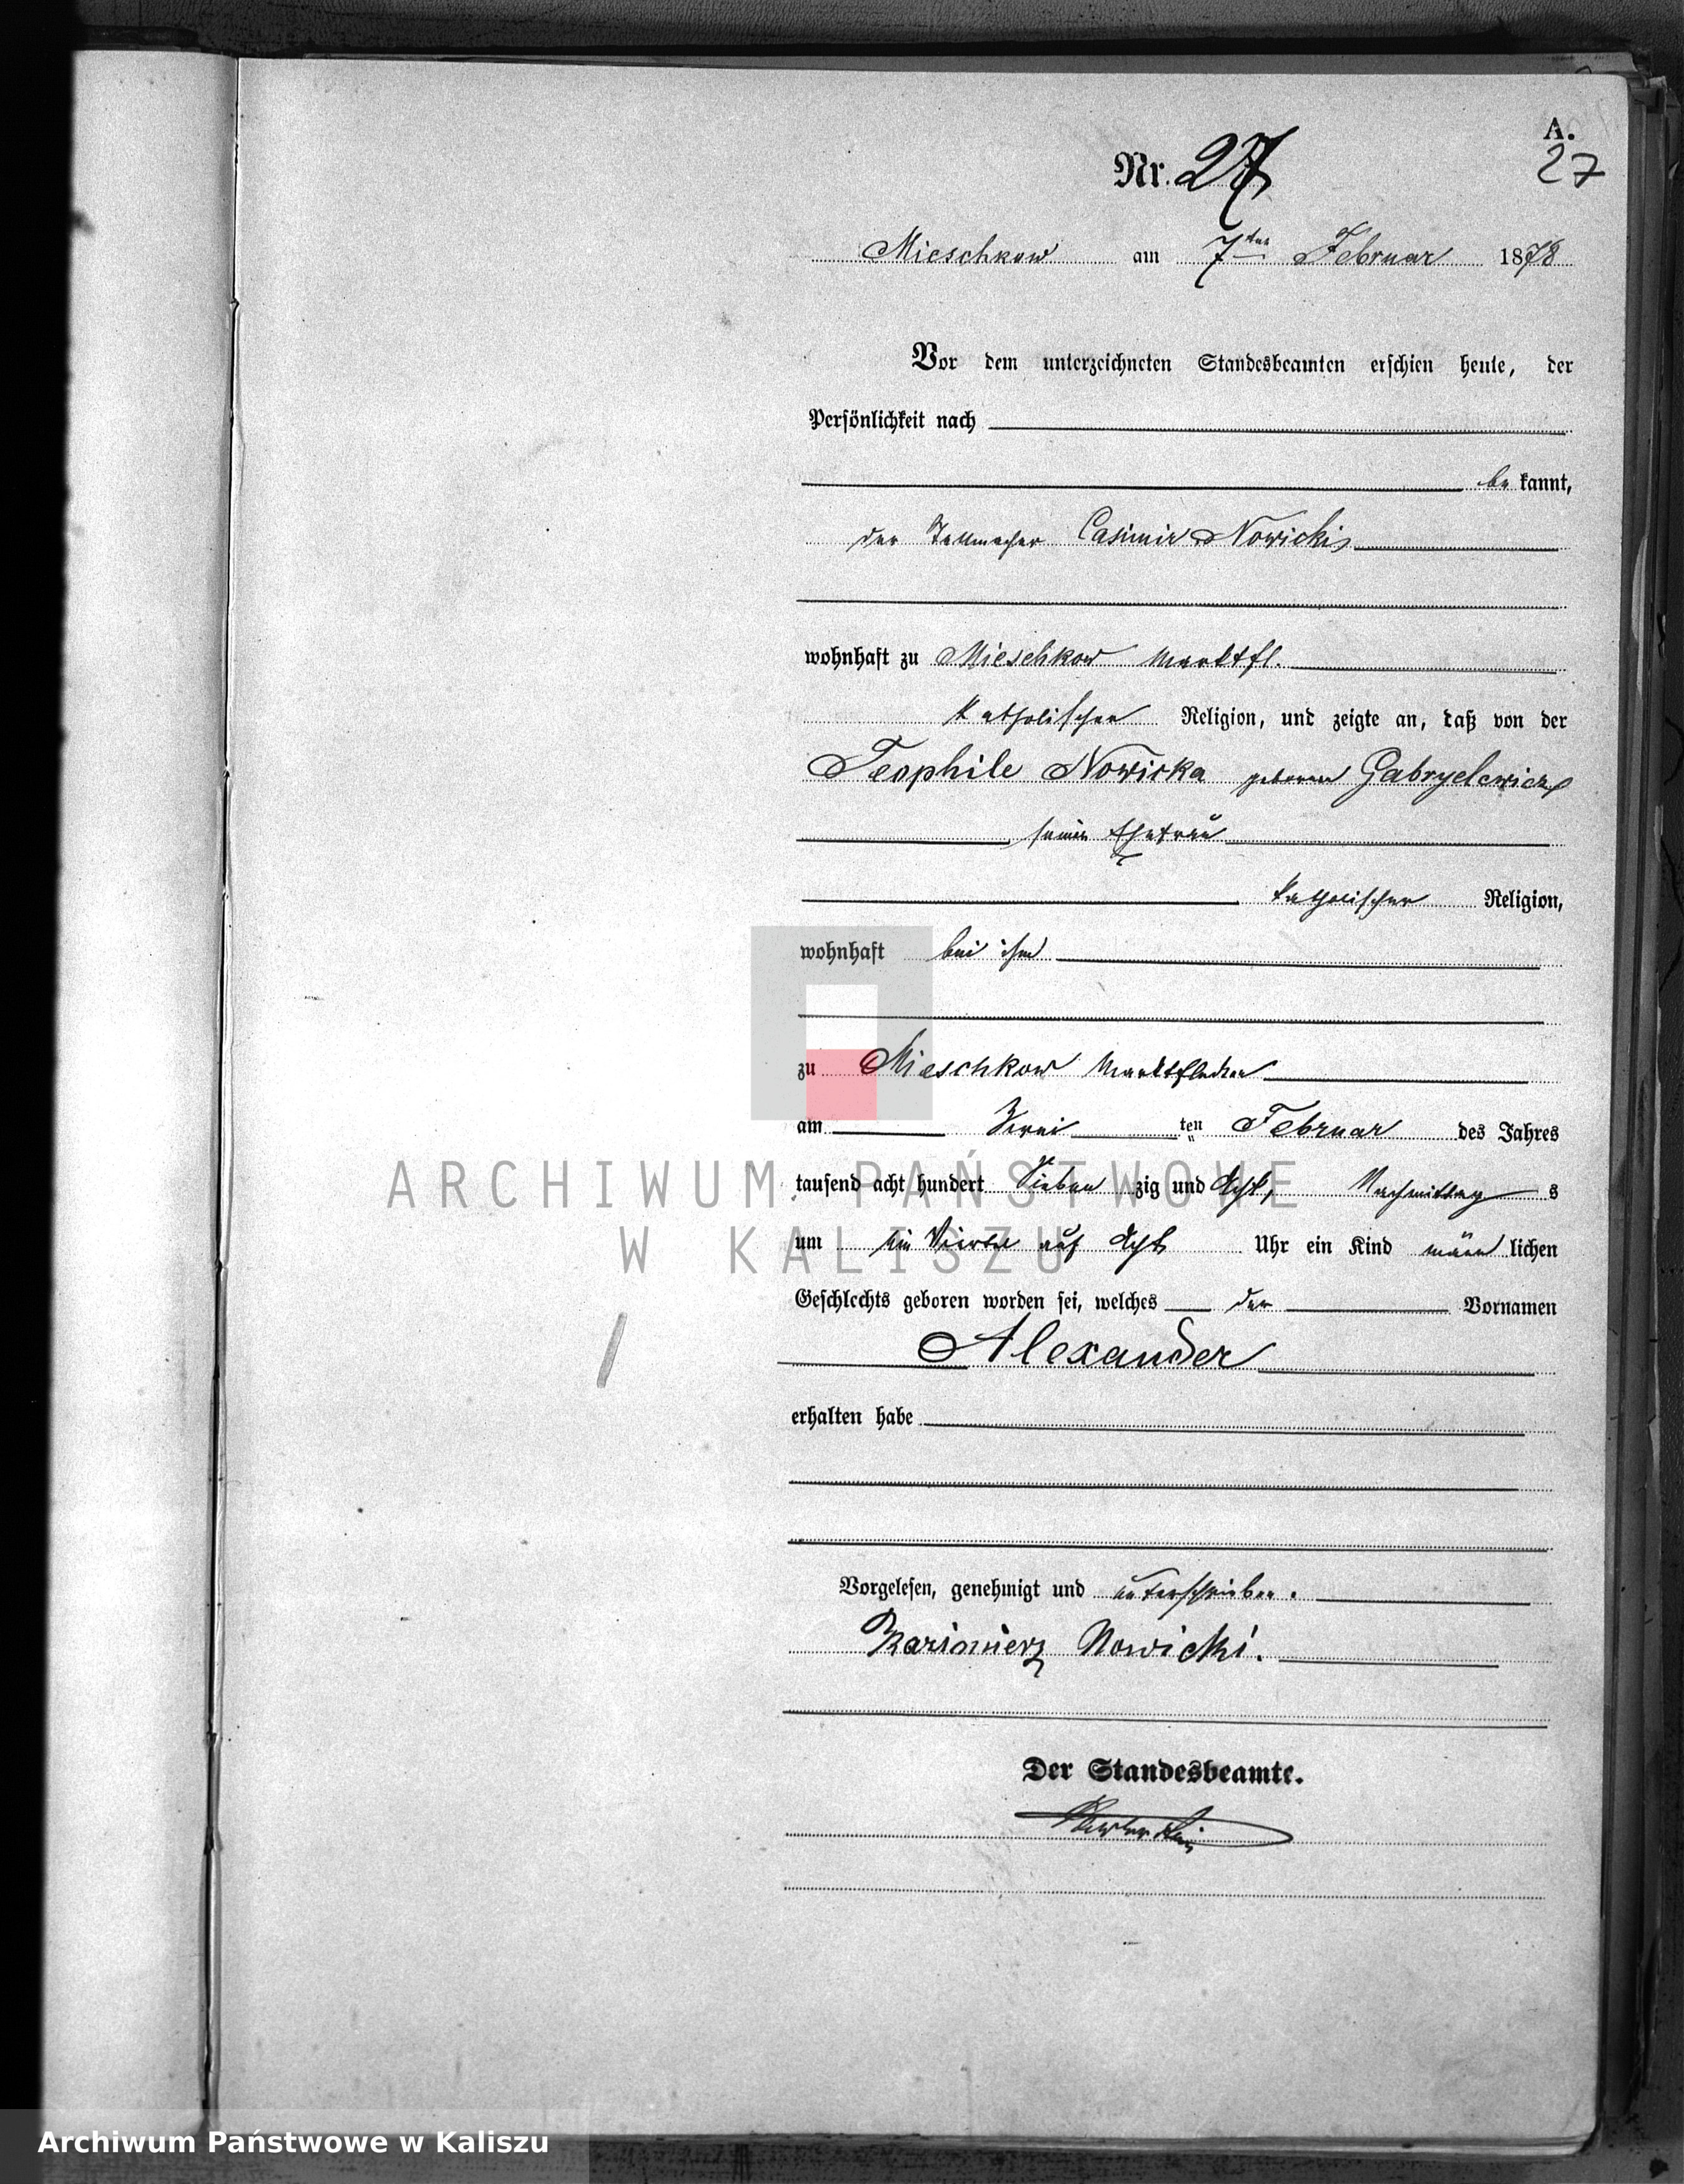 A.
27
Nr. 27
Mieschkow am 7ten Februar 1878
Vor dem unterzeichneten Standesbeamten erschien heute, der
Persönlichkeit nach
be kannt,
der Casimir Nowicki
wohnhaft zu Mieschkow Marktfl.
katholischer Religion, und zeigte an, daß von der
Teophile Nowicka geborene Gabryelewicz
seiner Ehefrau
katholischer Religion,
wohnhaft bei ihm
zu Mieschkow Marktflecken
am Zwei ten Februar des Jahres
tausend acht hundert Sieben zig und Acht, Nachmittag s
um ein Viertel auf Acht Uhr ein Kind männ lichen
Geschlechts geboren worden sei, welches den Vornamen
Alexander
erhalten habe
Vorgelesen, genehmigt und unterschrieben.
Kazimierz Nowicki.
Der Standesbeamte.
ARCHIWUM PAŃSTWOWE
W KALISZU
Archiwum Państwowe w Kaliszu